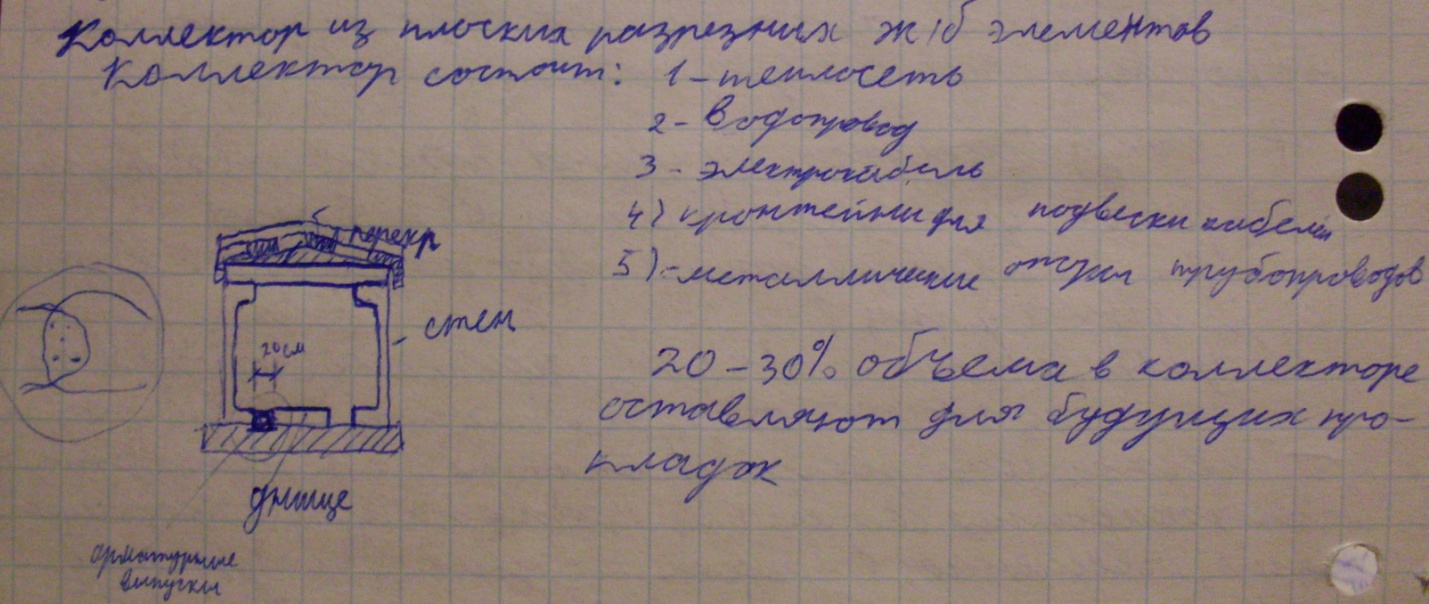 Коллектор из плоских разрезных ж/б элементов
Коллектор состоит: 1 - теплосеть
2 - водопровод
3 - электрокабель
4) кронтейны для подвески кабелей
5) - металлические опоры трубопроводов
перекр
стен
20 см
20 - 30% объема в коллекторе
оставляют для будущих про-
кладок
днище
арматурные
выпуски